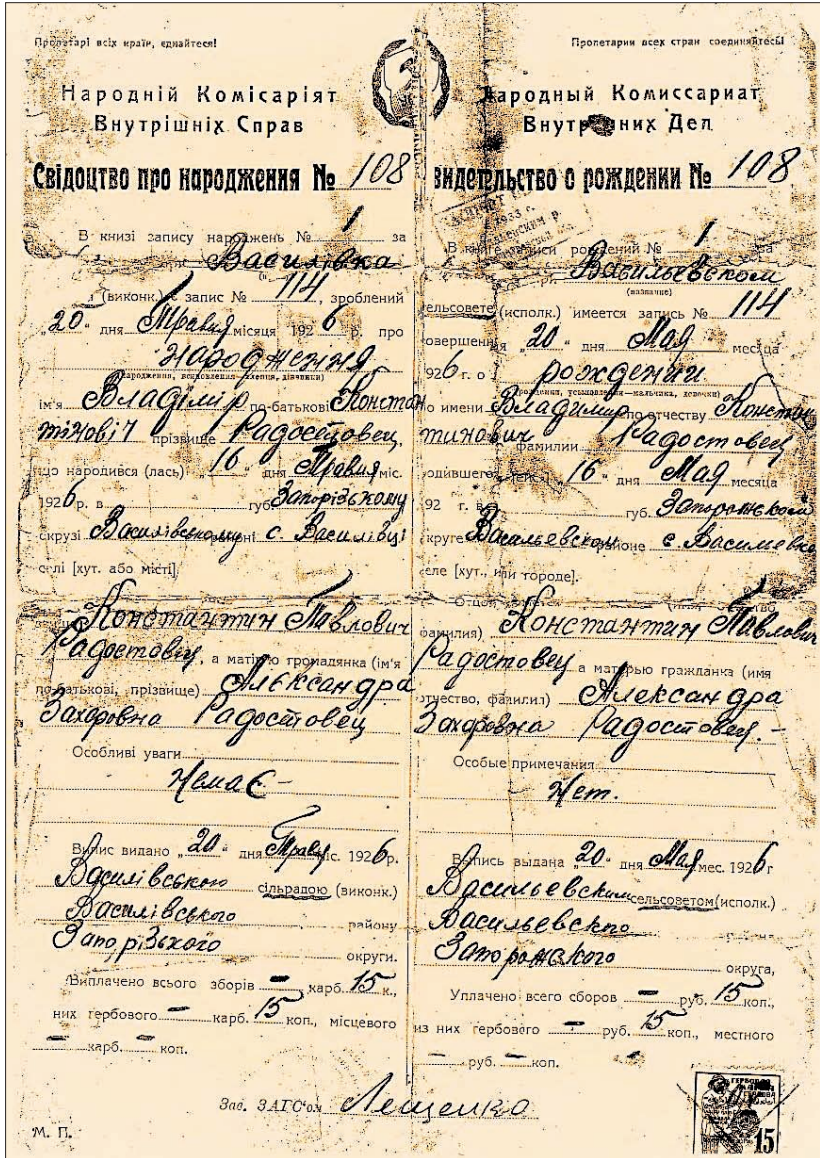 Пролетарі всіх країн, єднайтеся!
Народній Комісаріят
Внутрішніх Справ
Свідоцтво про народження № 108
В книзі запису народжень № 1 за
Василівка
(виконк.) є запис № 114, зроблений
„20“ дня Травня місяця 1926 р. про
народження
ім'я Владімір по-батькові Констан
тіновіч прізвище Радостовец,
що народився (лась) „16“ дня Травня міс.
1926 р. в губ. Запорізькому
окрузі Василівському с. Василівці
селі [хут. або місті].
Константин Павлович
Радостовец, а матір'ю громадянка (ім'я
по-батькові, прізвище) Александра
Захаровна Радостовец
Особливі уваги
Немає -
Випис видано „20“ дня Травня міс. 1926 р.
Василівською сільрадою (виконк.)
Василівського району
Запорізького округи.
Виплачено всього зборів – карб. 15 к.,
них гербового – карб. 15 коп., місцевого
– карб. – коп.
Пролетарии всех стран соединяйтесь!
Народный Комиссариат
Внутренних Дел
видетельство о рождении № 108
В книге записи рождений № 1 за
Васильевском
(название)
сельсовете (исполк.) имеется запись № 114
совершенная „20“ дня Мая месяца
1926 г. о рождении
по имени Владимир по отчеству Констан
тинович фамилии Радостовец
16“ дня Мая месяца
92 г. в губ. Запорожской
округе Васильевском районе с. Василевка
селе [хут., или городе].
фамилия) Константин Павлович
Радостовец а матерью гражданка (имя
отчество, фамилия) Александра
Захаровна Радостовец. –
Особые примечания
Нет.
Выпись выдана „20“ дня Мая мес. 1926 г
Васильевским сельсоветом (исполк.)
Васильевского
Запорожского округа,
Уплачено всего сборов – руб. 15 коп.,
из них гербового – руб. 15 коп., местного
– руб. – коп.
Зав. ЗАГС'ом Лещенко
М. П.
15